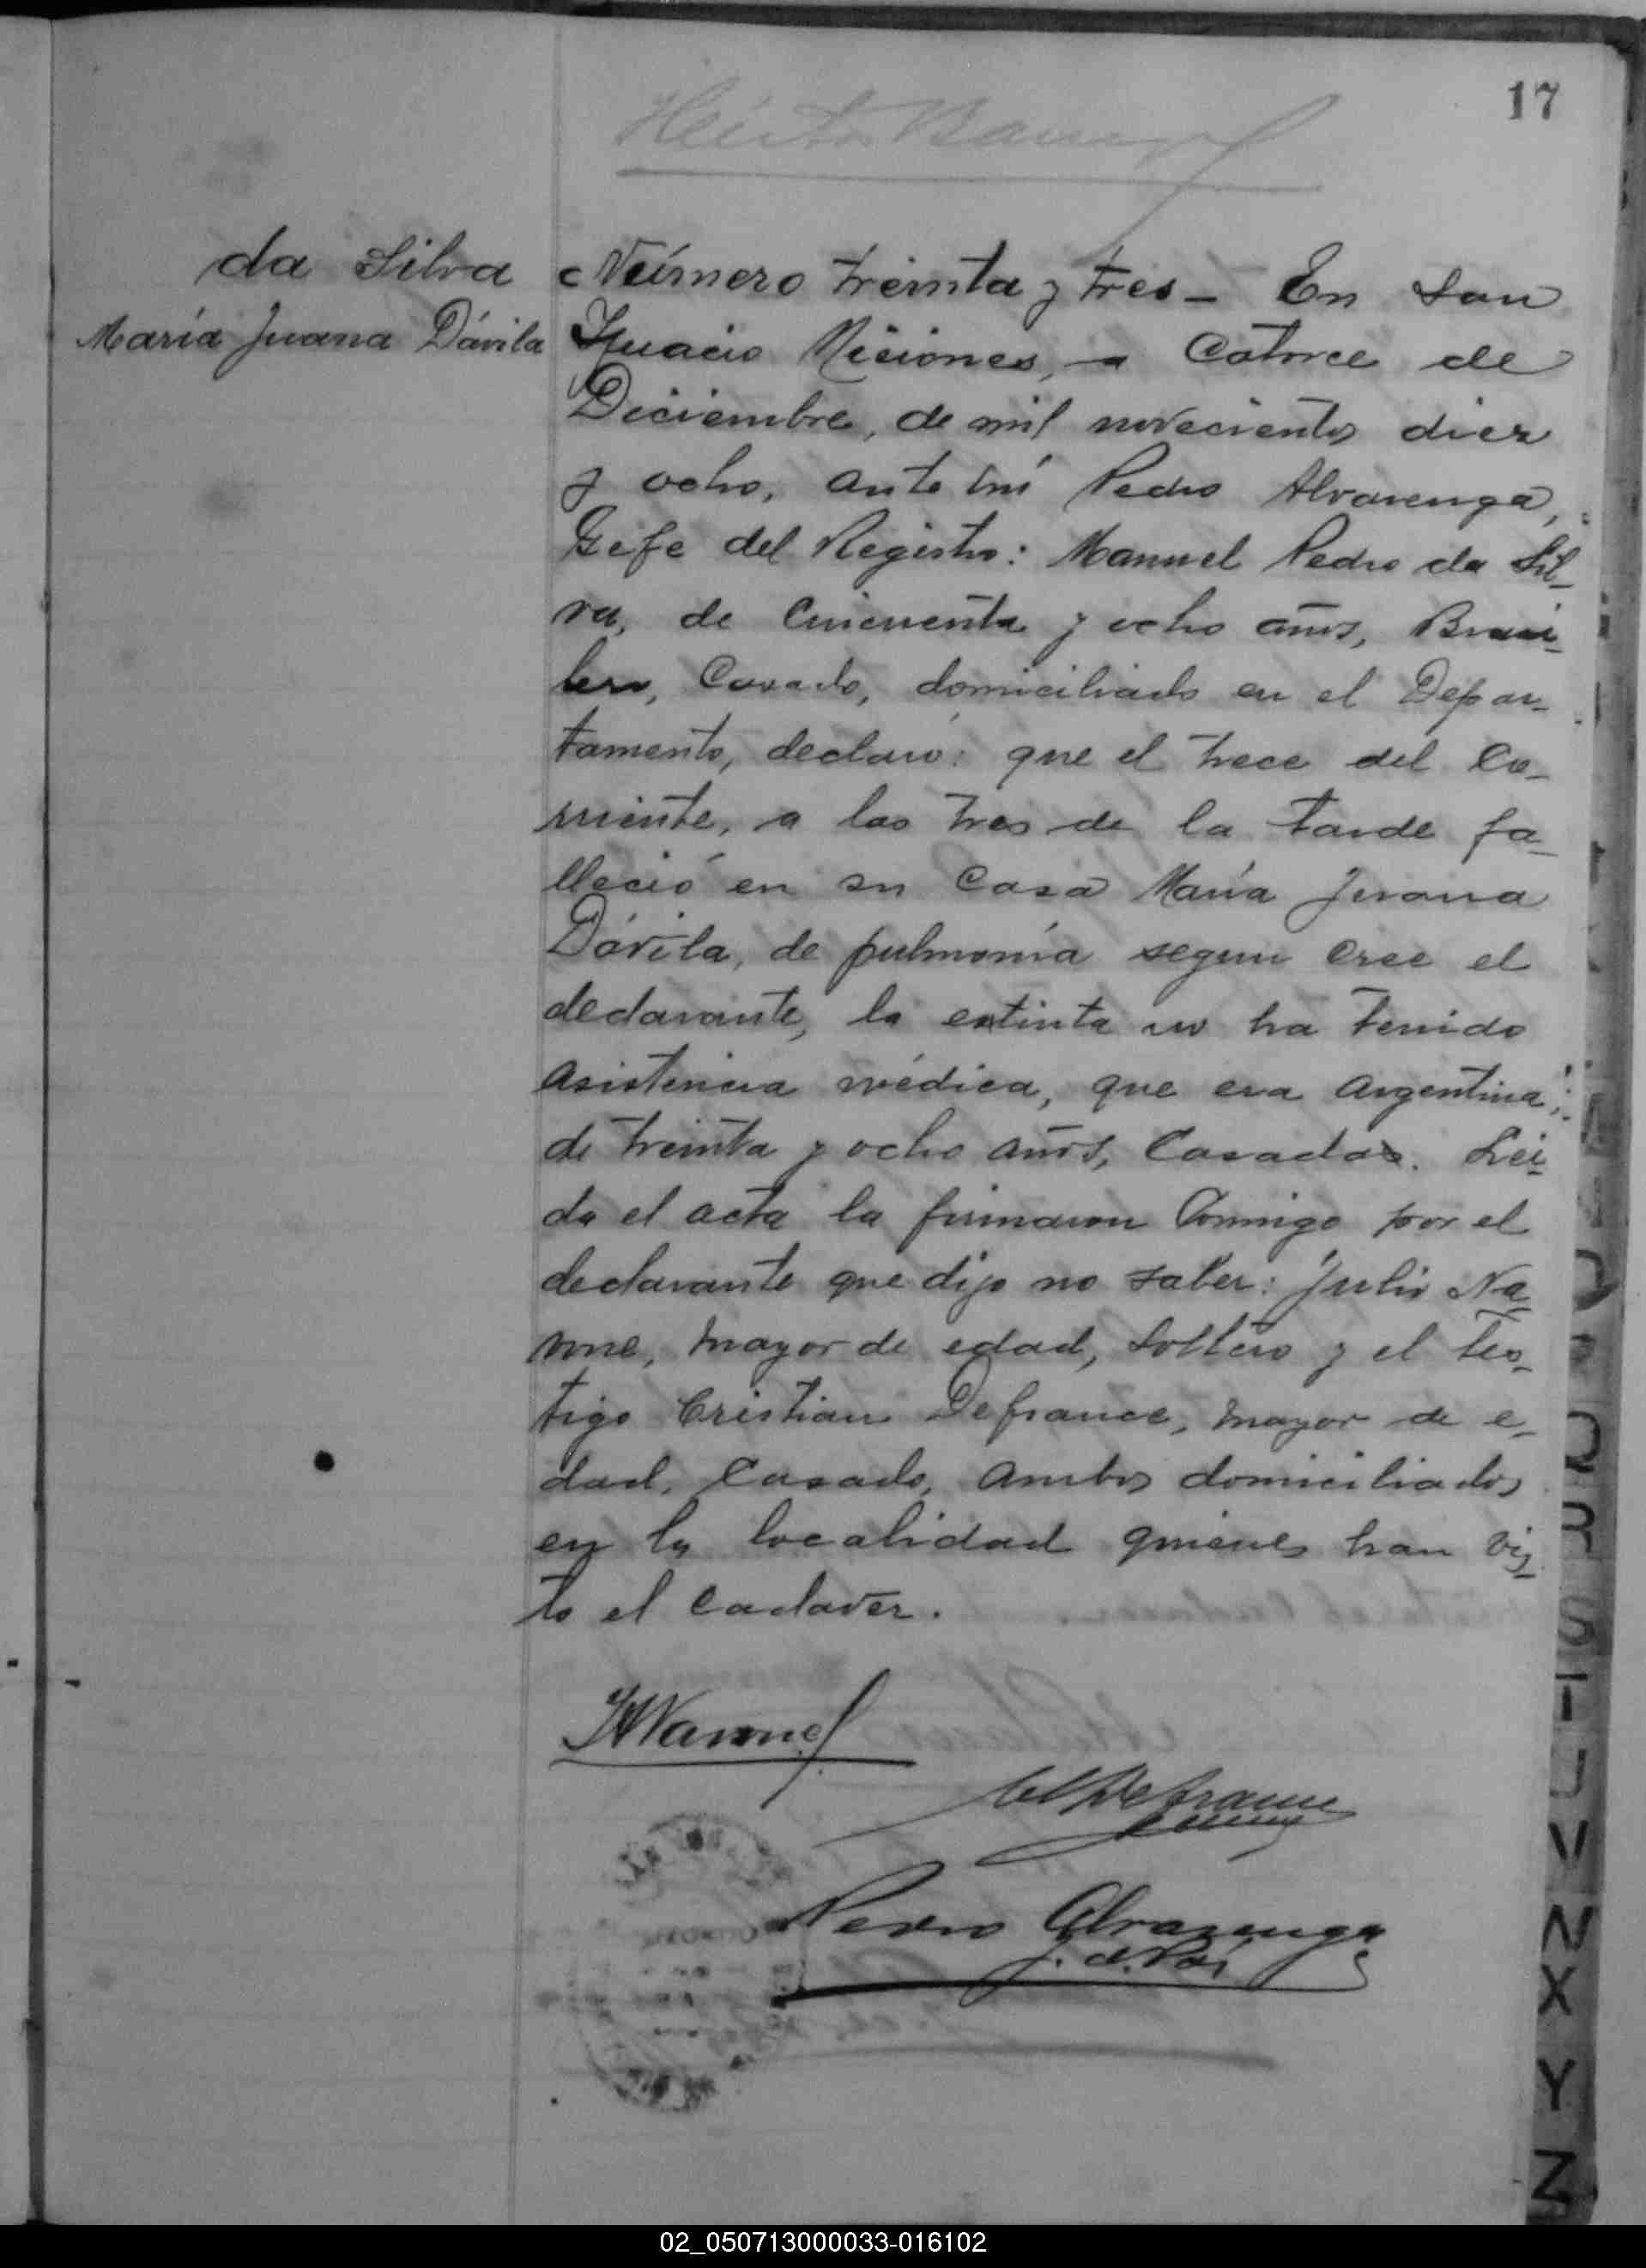 17
da Silva
María Juana Dávila
Número treinta y tres - En San
Ignacio Misiones, a Catorce de
Diciembre, de mil novecientos diez
y ocho, ante mí Pedro Alvarenga,
Gefe del Registro: Manuel Pedro da Sil-
va, de Cincuenta y ocho años, Brasi-
lero, Casado, domiciliado en el Depar-
tamento, declaró: que el trece del Co-
rriente, a las tres de la tarde fa-
lleció en su Casa María Juana
Dávila, de pulmonía segun cree el
declarante, la extinta no ha tenido
asistencia médica, que era argentina,
de treinta y ocho años, Casada. Leí-
da el acta la firmaron Conmigo por el
declarante que dijo no saber: Julio Na-
nne, mayor de edad, Soltero y el tes-
tigo Cristian Defrance, mayor de e-
dad, Casado, ambos domiciliados
en la localidad quienes han vis-
to el Cadaver.
Pedro Alvarenga
J. de Paz
02_050713000033-016102